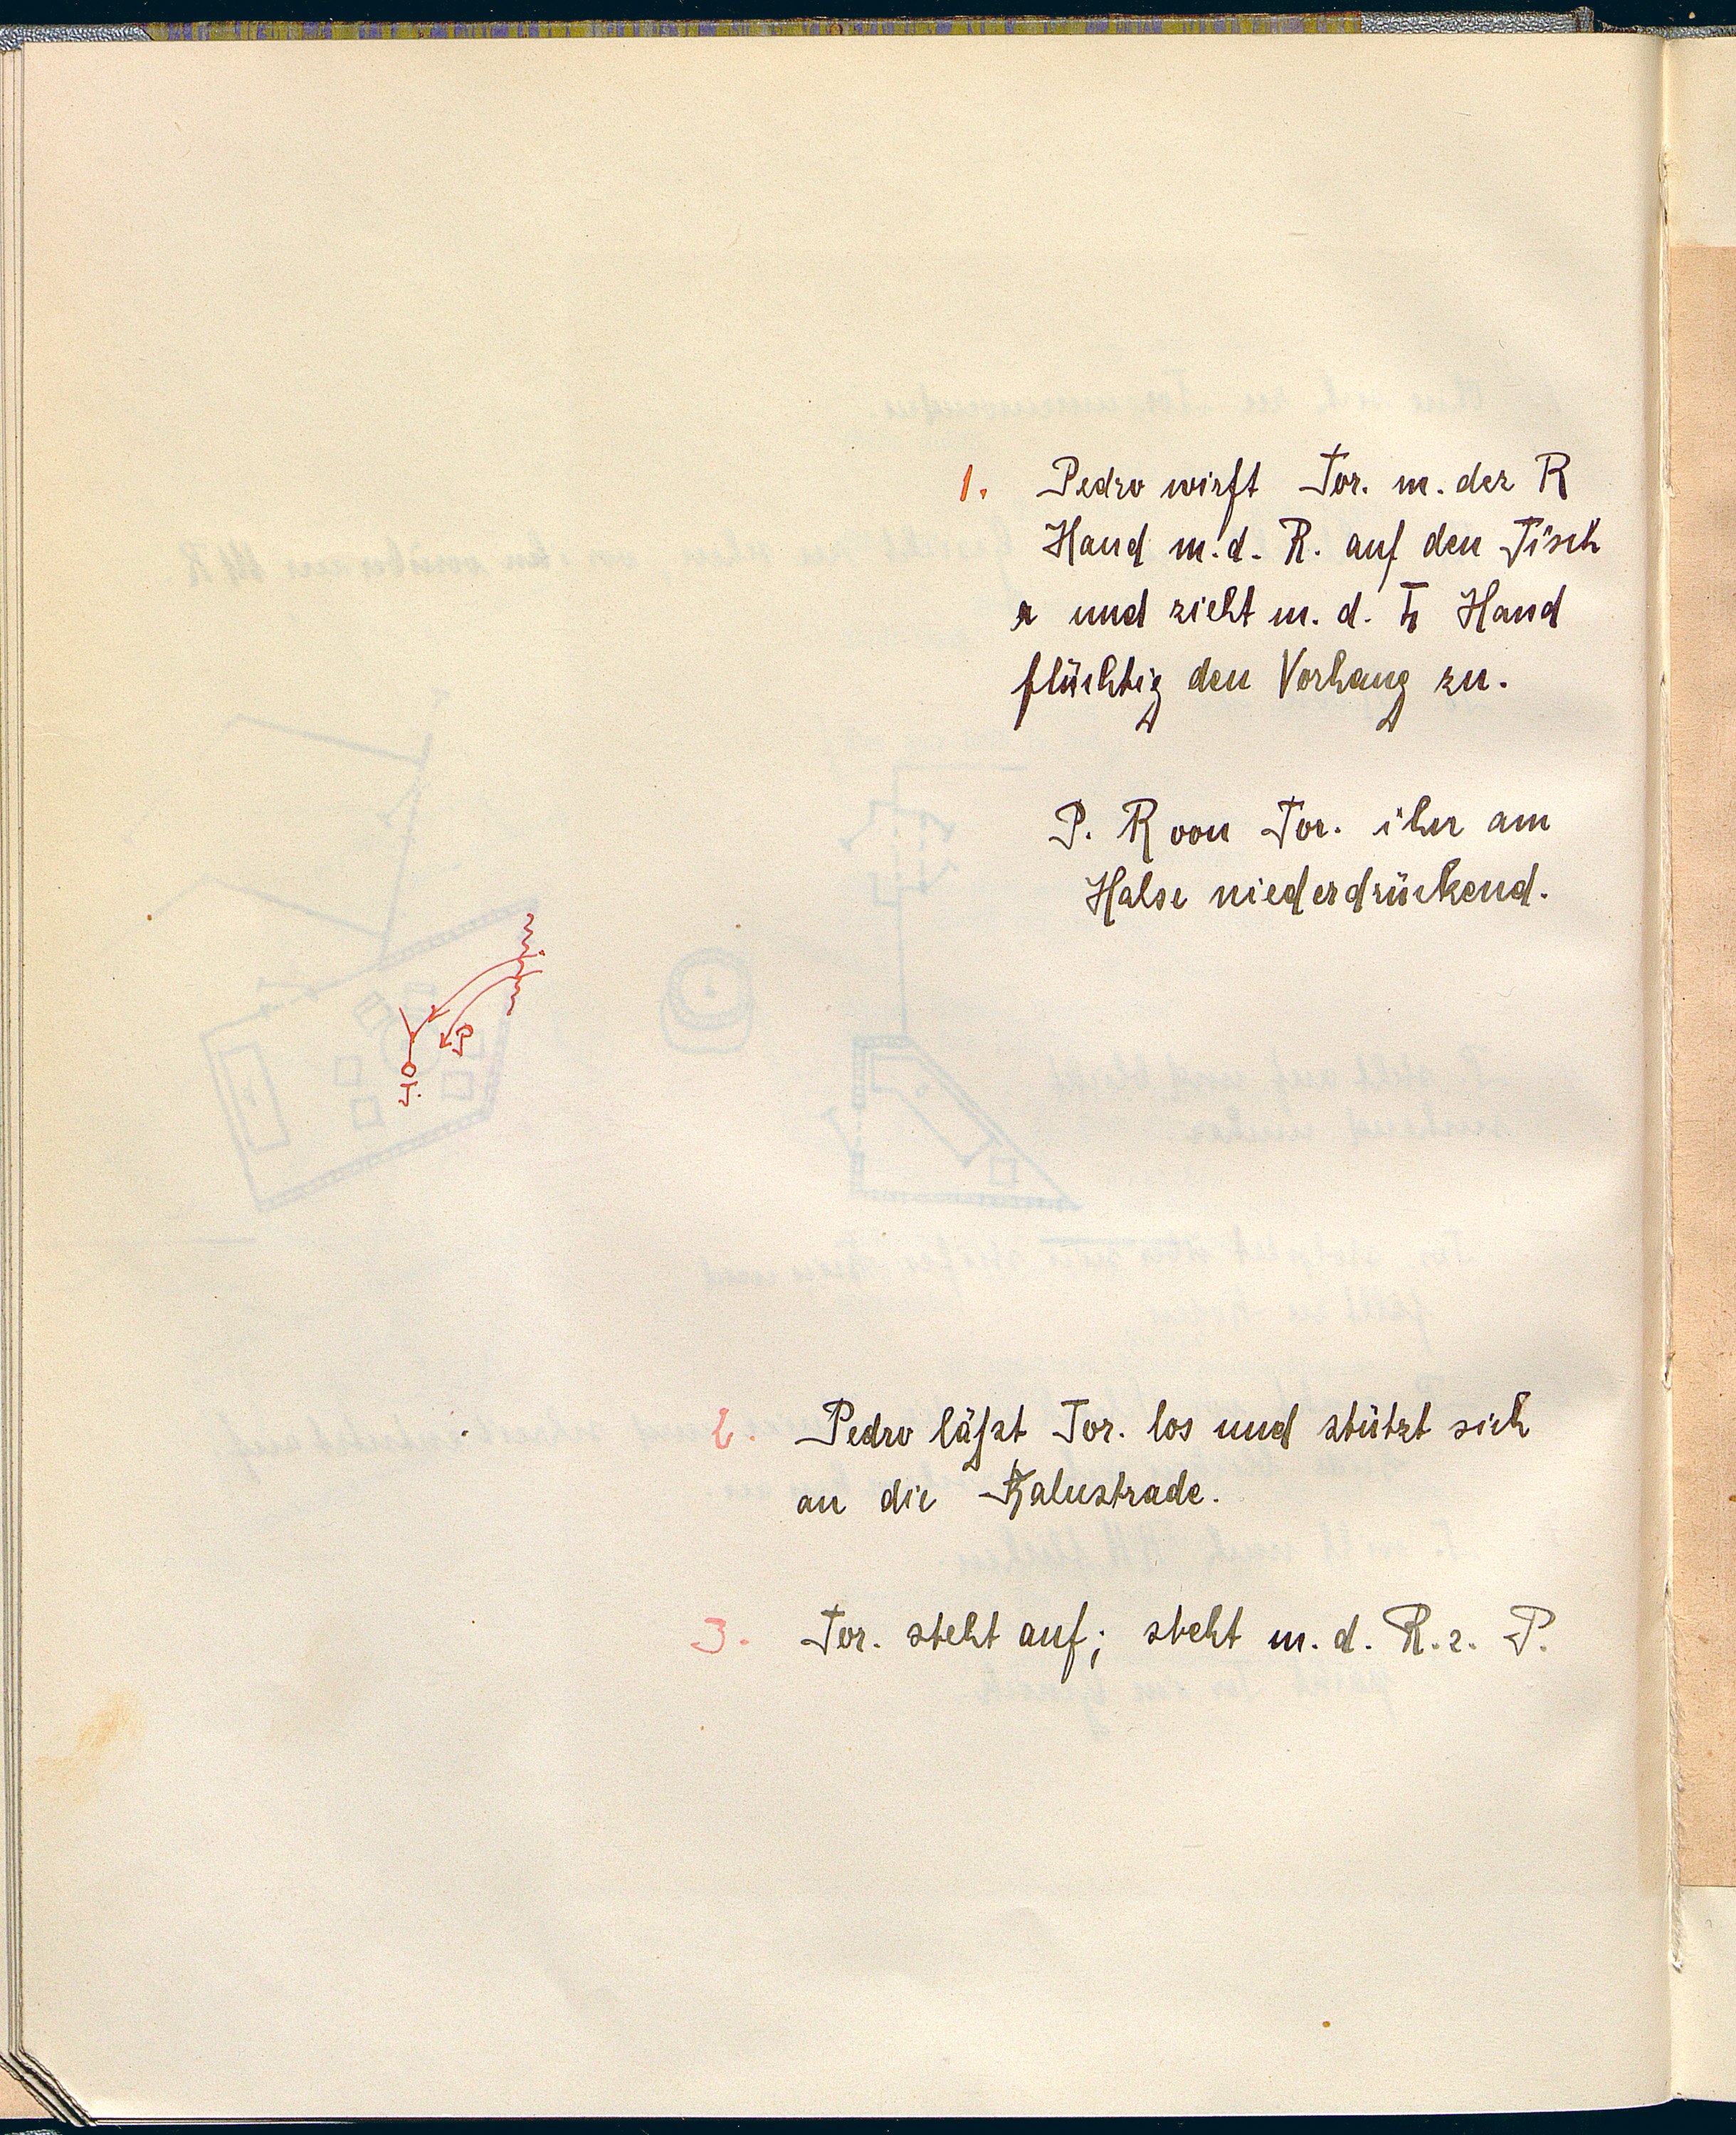 1. Pedro wirft Tor. m. der R
Hand m. d. R. auf den Tisch
und zieht m. d. L Hand
flüchtig den Vorhang zu.
P. R von Tor. ihr am
Halse niederdrückend.
P
T.
2. Pedro läßt Tor. los und stützt sich
an die Balustrade.
3. Tor. steht auf; steht m. d. R. z. P.